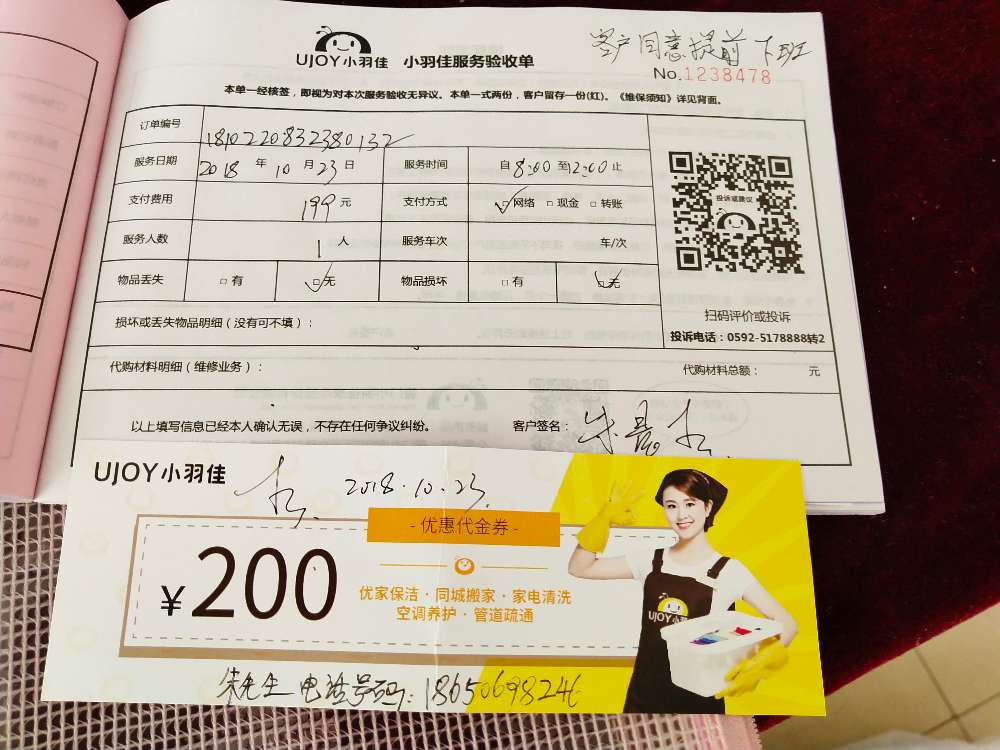 客户同意提前下班
UJOY小羽佳 小羽佳服务验收单
No.1238478
本单一经核签，即视为对本次服务验收无异议。本单一式两份，客户留存一份(红)。《维保须知》详见背面。
订单编号 181022083238 0132
服务日期 2018 年 10 月 23 日 服务时间 自 8:00 至 12:00 止
支付费用 199 元 支付方式 ☑网络 □现金 □转账
服务人数 1 人 服务车次 车/次
物品丢失 □有 ☑无 物品损坏 □有 ☑无
投诉或建议
扫码评价或投诉
投诉电话：0592-5178888转2
损坏或丢失物品明细（没有可不填）：
代购材料明细（维修业务）： 代购材料总额： 元
以上填写信息已经本人确认无误，不存在任何争议纠纷。 客户签名：
UJOY小羽佳
2018.10.23.
-优惠代金券-
¥200
优家保洁·同城搬家·家电清洗
空调养护·管道疏通
UJOY小羽佳
朱先生 电话号码：18650698246